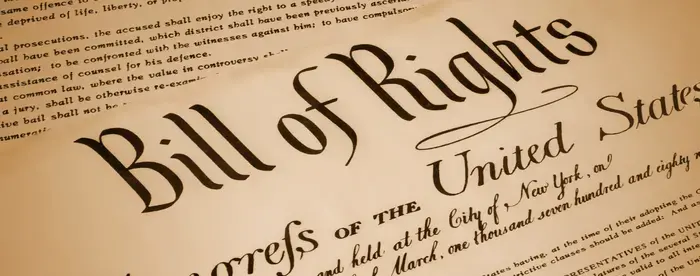 same offence to
deprived of life, liberty, or pro
al prosecutions, the accused shall enjoy the right to a speedy
shall have been committed, which district shall have been previously ascer
sation; to be confronted with the witnesses against him; to have compulsory
assistance of counsel for his defence.
at common law, where the value in controversy shall
a jury, shall be otherwise re-exami
ive bail shall not be
numerat
Bill of Rights
ongreſs OF THE United States
and held at the City of New York, on
March, one thousand seven hundred and eighty n
tates having, at the time of their adopting the C
trictive clauses should be added: And as
REPRESENTATIVES of the UNIT
of the several S
valid to all inte